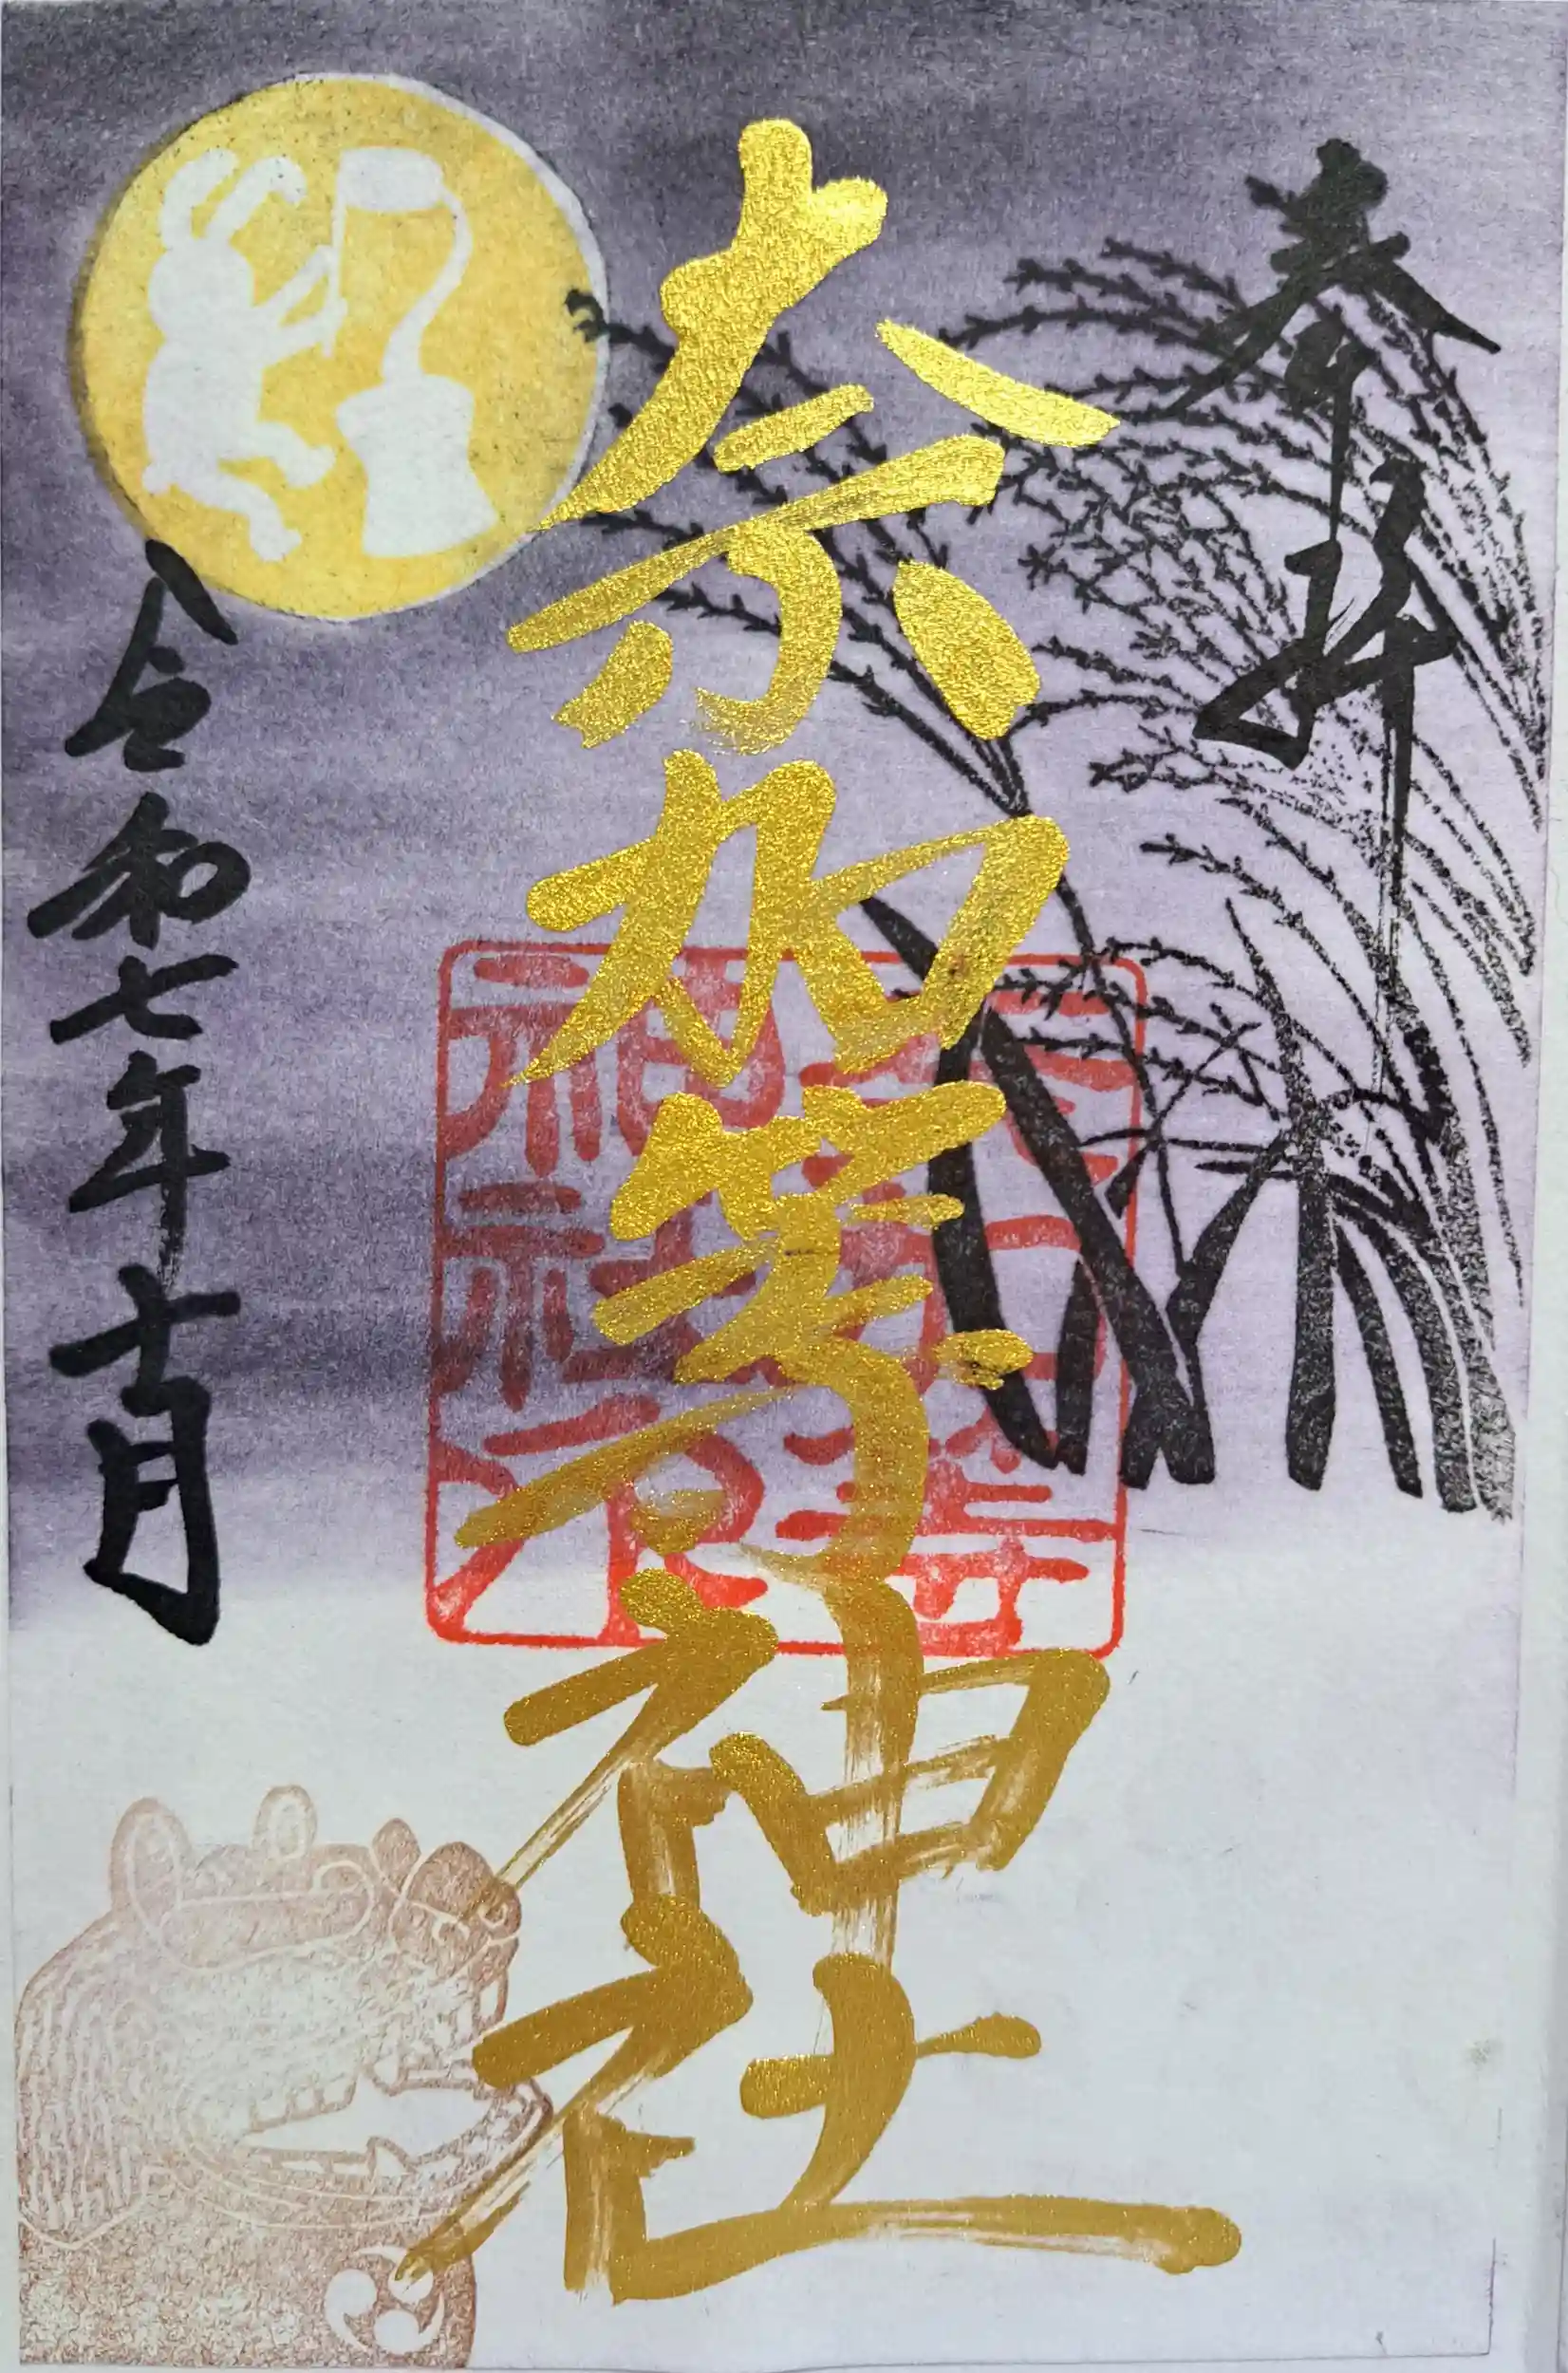 奉拝
奈加等神社
令和七年十月